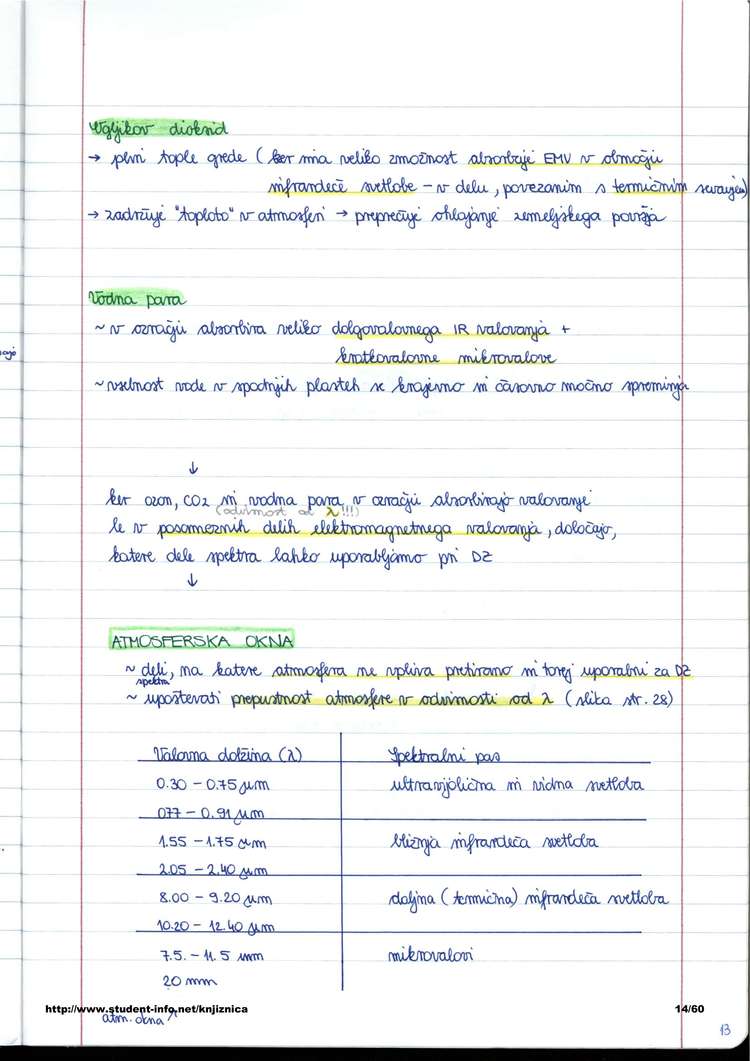 Ogljikov dioksid
→ plin tople grede (ker ima veliko zmožnost absorbcije EMV v območju
infrardeče svetlobe - v delu, povezanim s termičnim sevanjem)
→ zadržuje "toploto" v atmosferi → preprečuje ohlajanje zemeljskega površja
Vodna para
~ v ozračju absorbira veliko dolgovalovnega IR valovanja +
kratkovalovne mikrovalove
~ vsebnost vode v spodnjih plasteh se krajevno in časovno močno spreminja
↓
ker ozon, CO2 in vodna para v ozračju absorbirajo valovanje
(odvisnost od λ!!!)
le v posameznih delih elektromagnetnega valovanja, določajo,
katere dele spektra lahko uporabljamo pri DZ
↓
ATMOSFERSKA OKNA
~ deli, na katere atmosfera ne vpliva pretirano in torej uporabni za DZ
spektra
~ upoštevati prepustnost atmosfere v odvisnosti od λ (slika str. 28)
Valovna dolžina (λ) Spektralni pas
0.30 - 0.75 μm ultravijolična in vidna svetloba
077 - 0.91 μm
1.55 - 1.75 μm bližnja infrardeča svetloba
2.05 - 2.40 μm
8.00 - 9.20 μm daljna (termična) infrardeča svetloba
10.20 - 12.40 μm
7.5. - 11.5 mm mikrovalovi
20 mm
http://www.student-info.net/knjiznica 14/60
atm. okna ↗
13